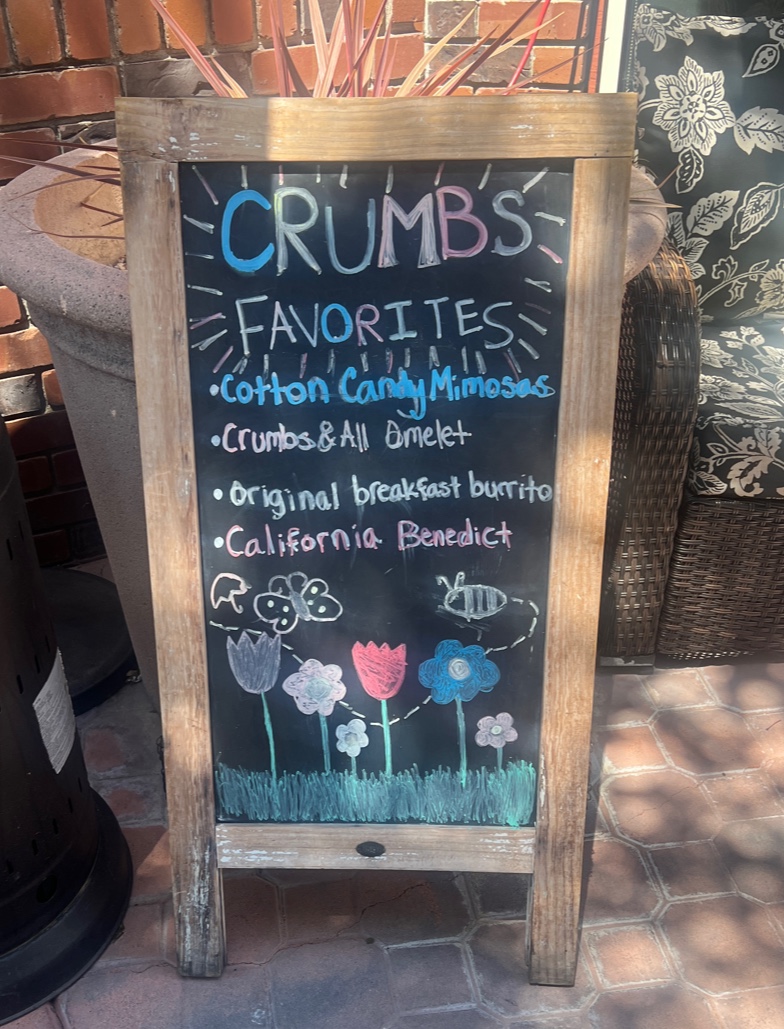 CRUMBS
FAVORITES
•Cotton Candy Mimosas
•Crumbs&All Omelet
•Original breakfast burrito
•California Benedict